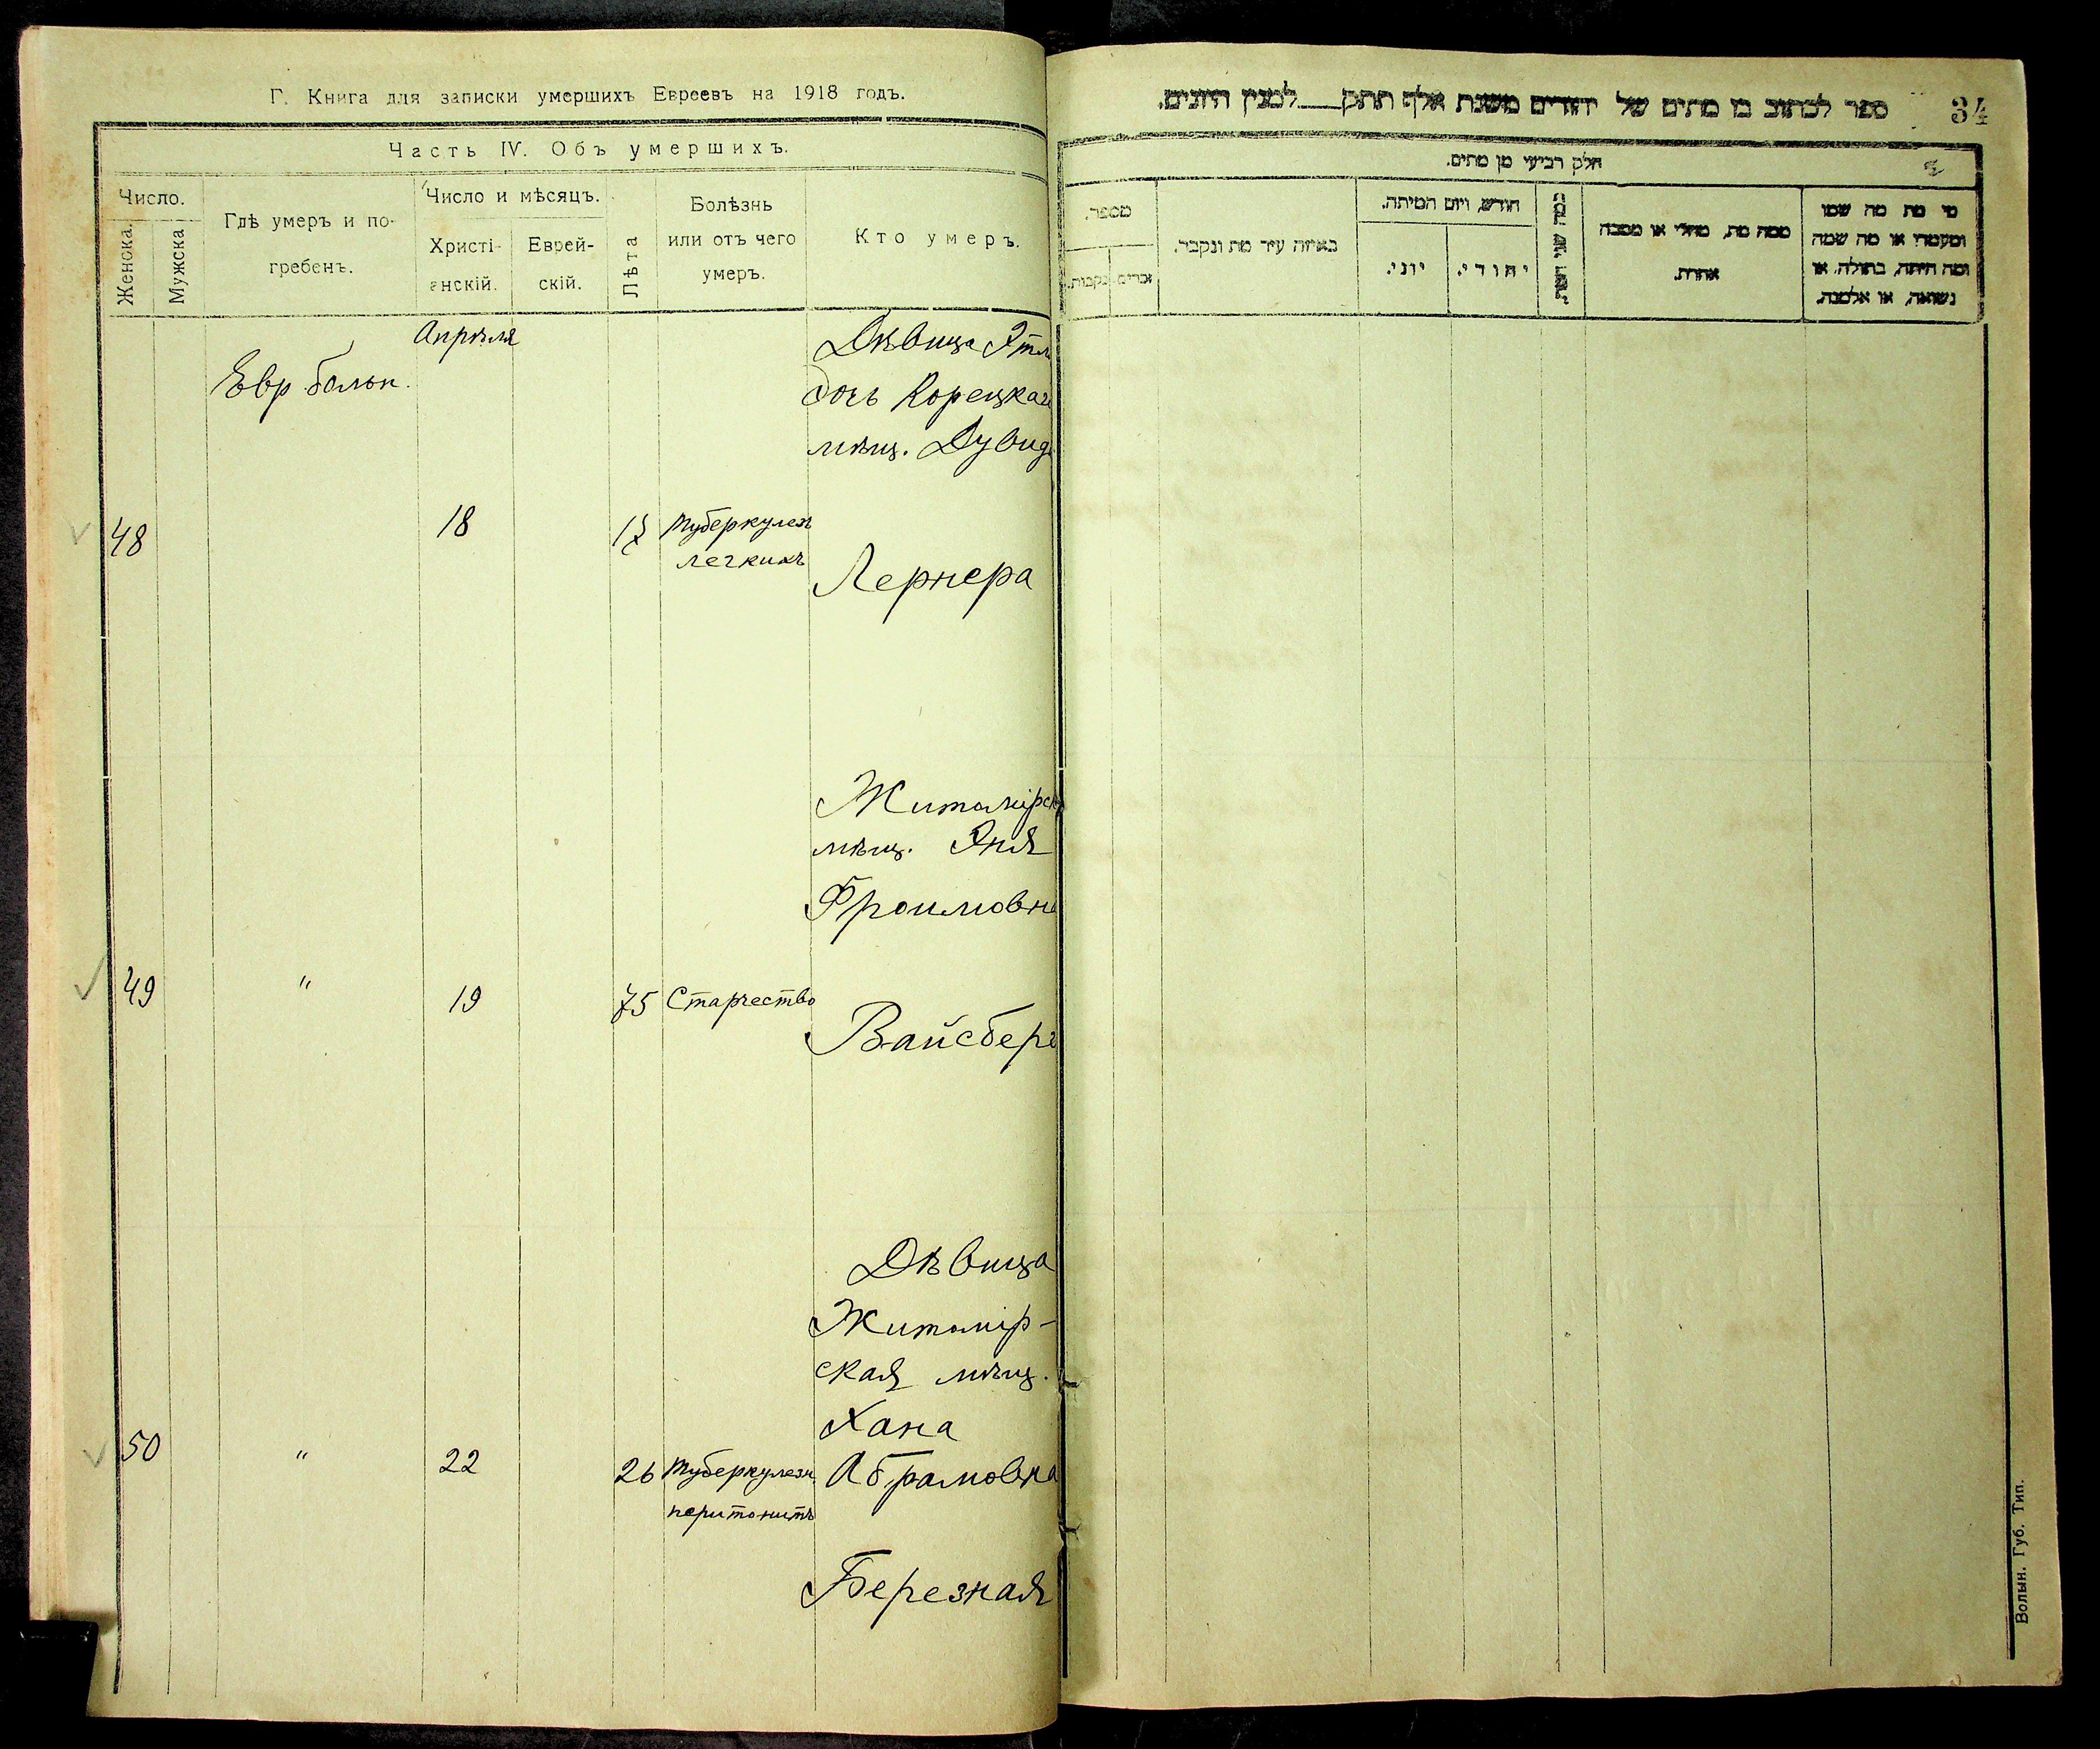 Г. Книга для записки умершихъ Евреевъ на 1918 годъ.
Часть IV. Объ умершихъ.
Число.
Женска.
Мужска
Гдѣ умеръ и по-
гребенъ.
Число и мѣсяцъ.
Христі-
анскій.
Еврей-
скій.
Лѣта
Болѣзнь
или отъ чего
умеръ.
Кто умеръ.
Апрѣля
Евр. больн.
48
18
Туберкулезъ
легкихъ
Дѣвица
дочь Корецкаго
мѣщ. Дувида
Лернера
49
"
19
75
Старчество
Житомірск
мѣщ. Эня
Фроимовна
Вайсберг
50
"
22
26
Туберкулезн.
перитонитъ
Дѣвица
Житомір-
ская мѣщ.
Хана
Абрамовна
Березная
ספר לכתוב בו מתים של יהודים משנת אלף תתק לכנין היונים.
34
חלק רביעי מן מתים.
מספר.
זכרים
נקבות.
באיזה עיר מת ונקבר.
חודש, ויום המיתה.
יוני.
יהודי.
ממה מת, מחלי או מסבה
אחרת.
מי מת מה שמו
ומעמדו או מה שמה
ומה היתה, בתולה, או
נשואה, או אלמנה.
Волын. Губ. Тип.